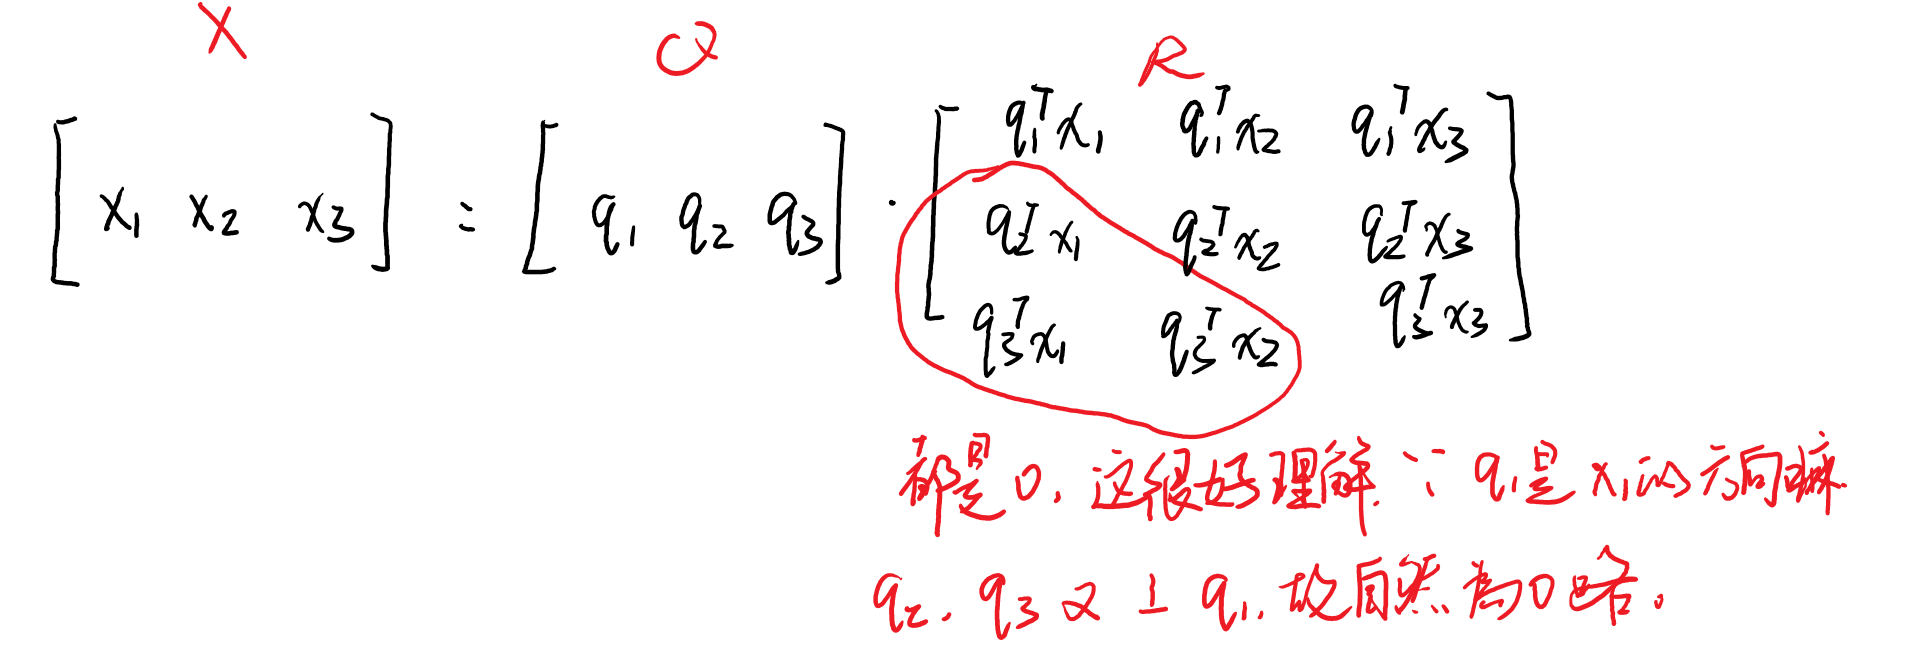 X Q R
[ x₁ x₂ x₃ ] = [ q₁ q₂ q₃ ] · [ q₁ᵀx₁ q₁ᵀx₂ q₁ᵀx₃
q₂ᵀx₁ q₂ᵀx₂ q₂ᵀx₃
q₃ᵀx₁ q₃ᵀx₂ q₃ᵀx₃ ]
都是0,这很好理解.∵ q₁是x₁的方向嘛.
q₂、q₃又⊥q₁,故自然为0咯。